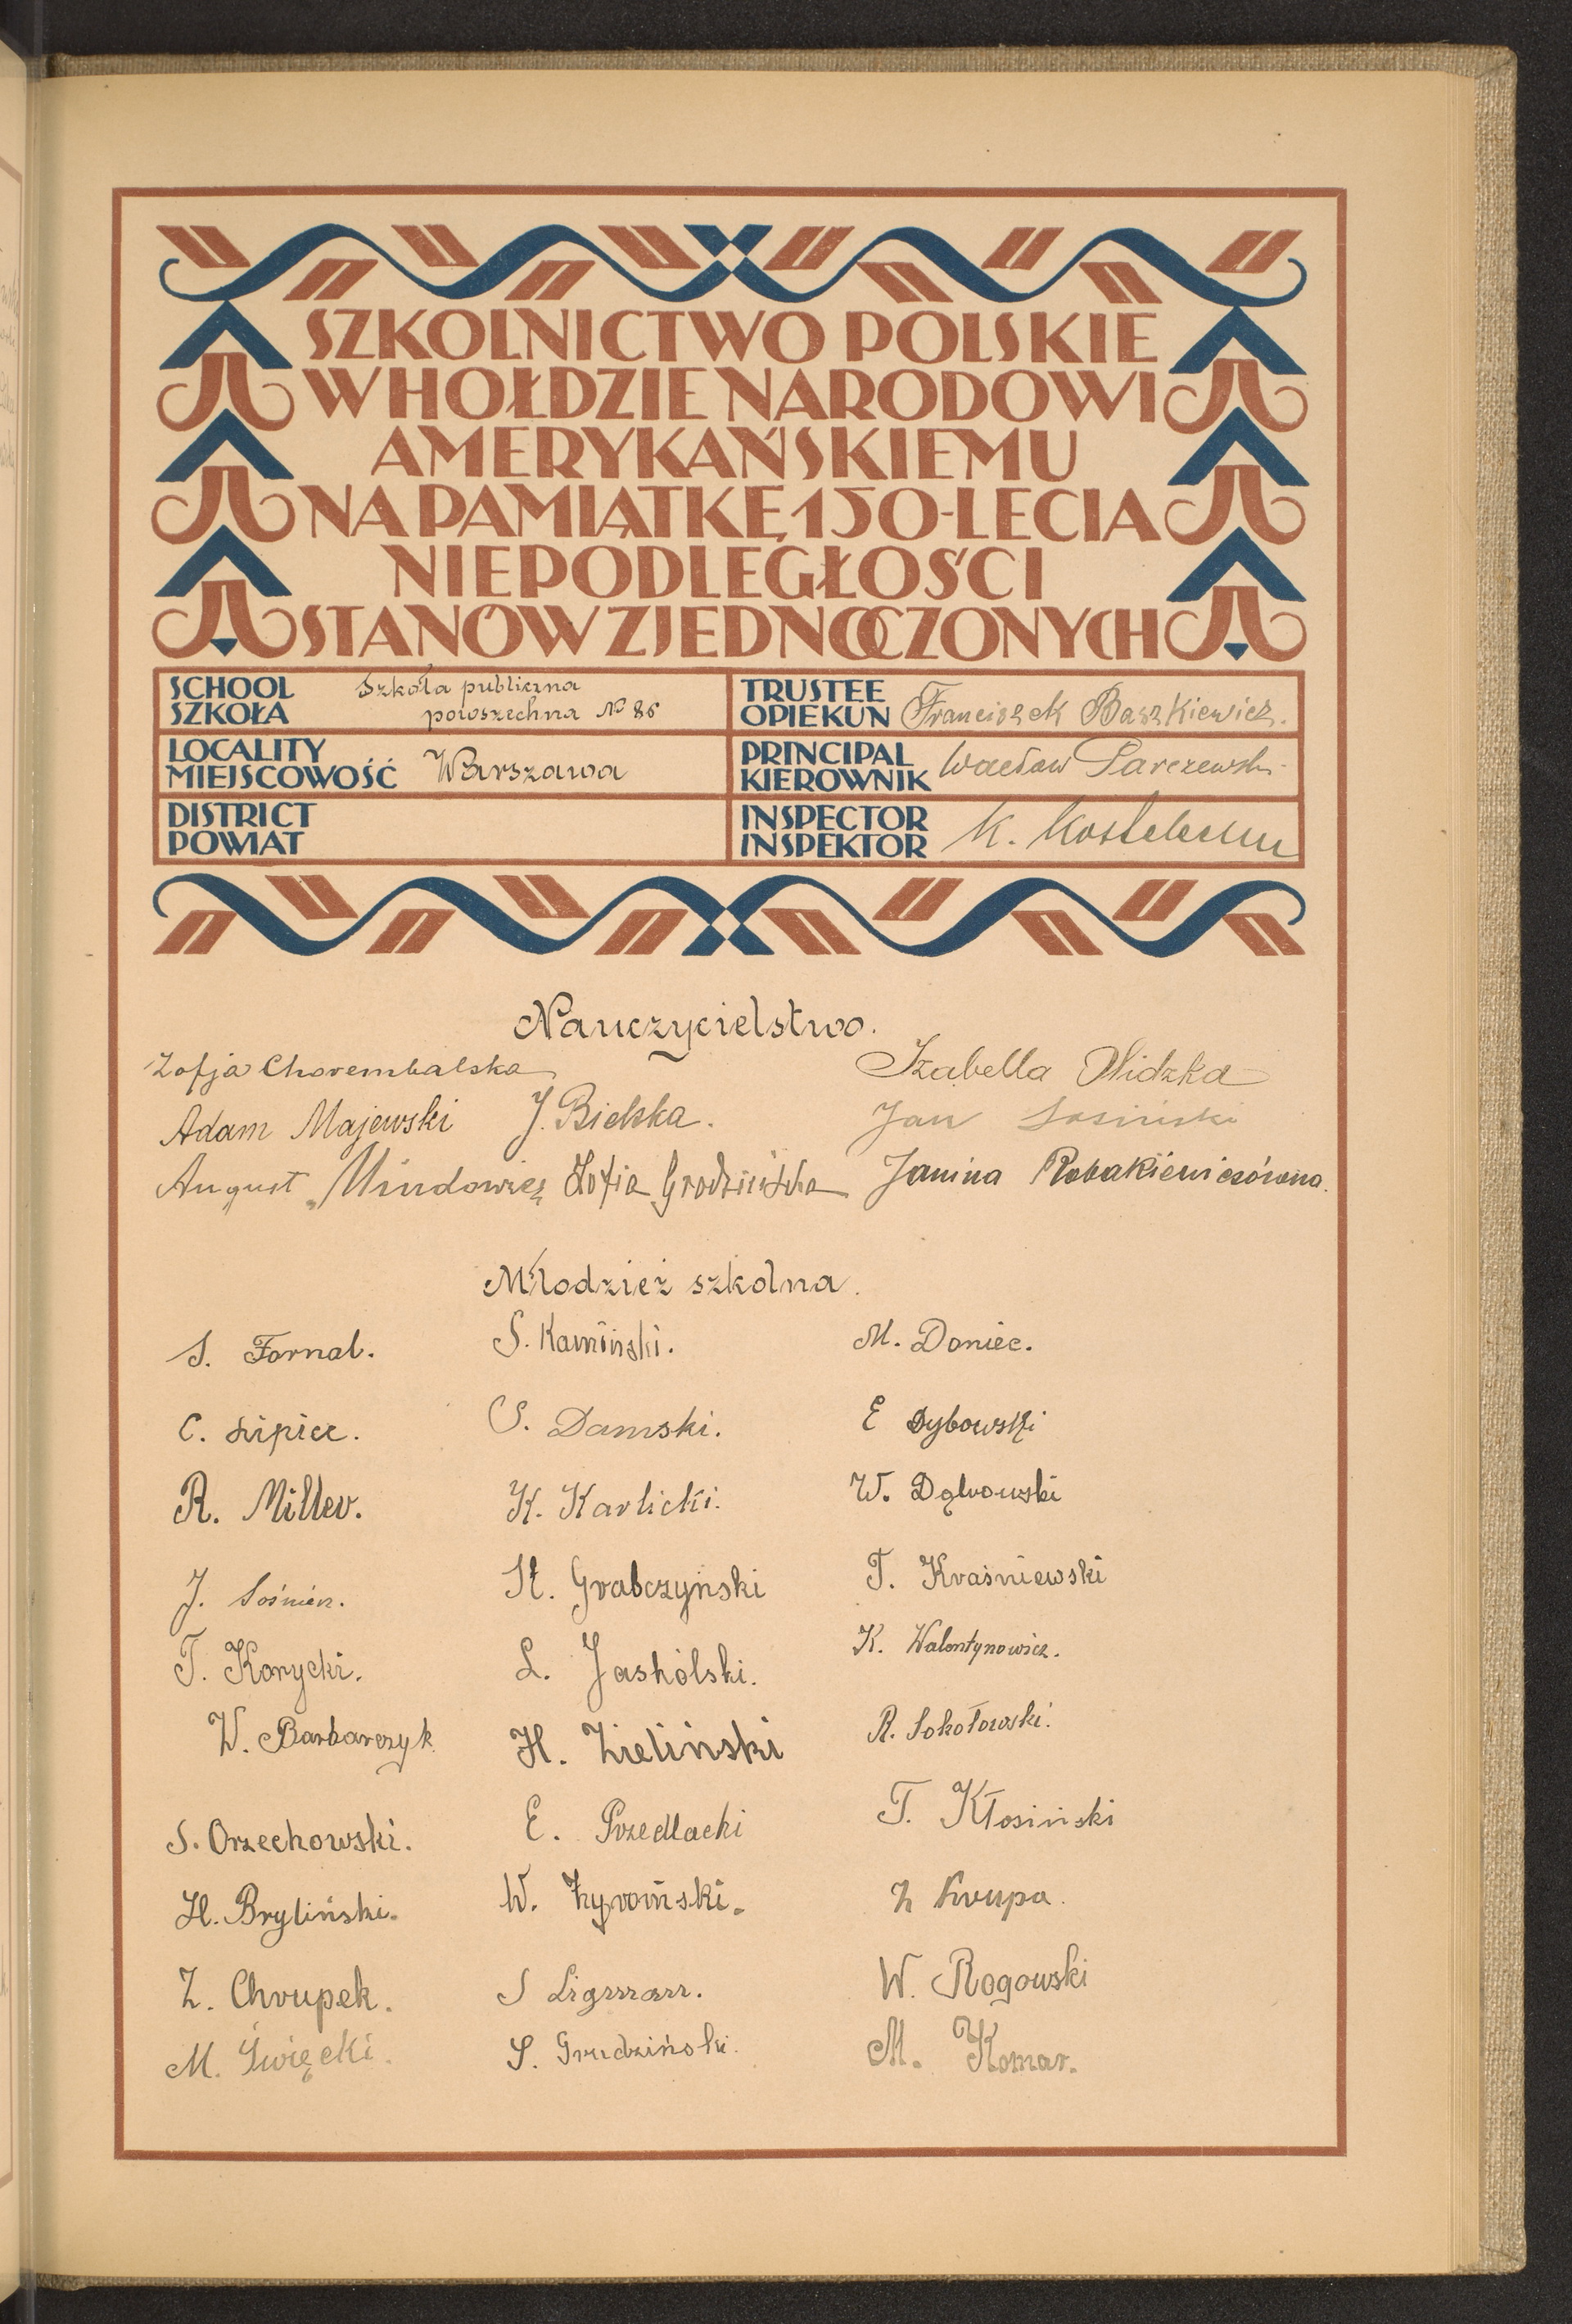 SZKOLNICTWO POLSKIE
W HOŁDZIE NARODOWI
AMERYKAŃSKIEMU
NA PAMIĄTKĘ 150-LECIA
NIEPODLEGŁOŚCI
STANÓW ZJEDNOCZONYCH
SCHOOL
SZKOŁA
Szkoła publiczna
powszechna № 86
TRUSTEE
OPIEKUN
Franciszek Baszkiewicz.
LOCALITY
MIEJSCOWOŚĆ
Warszawa
PRINCIPAL
KIEROWNIK
Wacław Parczewski
DISTRICT
POWIAT
INSPECTOR
INSPEKTOR
K.
Nauczycielstwo.
Zofja Chorembalska
Izabella Widzka
Adam Majewski
J. Bielska.
Jan Sosiński
August Mindowicz
Zofia Grodzińska
Janina Robakiewiczówna.
Młodzież szkolna.
S. Fornal.
S. Kamiński.
M. Doniec.
C. Lipiec.
S. Damski.
E Dybowski
R. Miller.
K. Karlicki.
W. Dąbrowski
J. Sośnierz.
St. Grabczyński
T. Kraśniewski
T. Korycki.
L. Jaskólski.
K. Walentynowicz.
W. Barbarczyk
H. Zieliński
R. Sokołowski.
S. Orzechowski.
E. Przedlacki
T. Kłosiński
H. Bryliński.
W. Żyromski.
Z Krupa.
Z. Chrupek.
S Ligman.
W. Rogowski
M. Święcki.
S. Grudziński.
M. Komar.